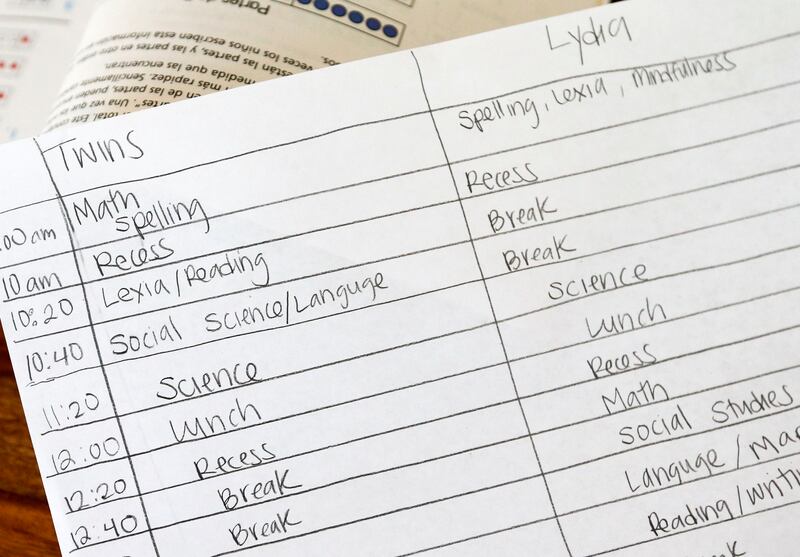 total. Este
partes". Una vez que
de las partes, pueden
más rapidez. Sencillamente
medida que las encuentran.
están las partes, y las partes en otro
veces los niños escriben esta información
Partes de
Twins Lydia
:00 am Math Spelling, Lexia, Mindfulness
Spelling
10 am Recess Recess
10:20 Lexia/Reading Break
10:40 Social Science/Languge Break
11:20 Science Science
12:00 Lunch Lunch
12:20 Recess Recess
12:40 Break Math
Break Social Studies
Languge/
Reading/